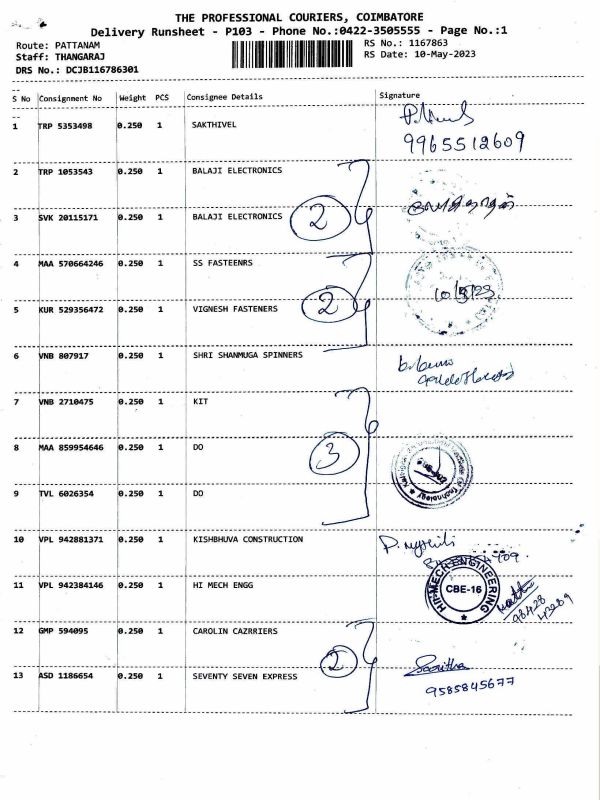 THE PROFESSIONAL COURIERS, COIMBATORE
Delivery Runsheet - P103 - Phone No.:0422-3505555 - Page No.:1
Route: PATTANAM RS No.: 1167863
Staff: THANGARAJ RS Date: 10-May-2023
DRS No.: DCJB116786301
S No Consignment No Weight PCS Consignee Details Signature
1 TRP 5353498 0.250 1 SAKTHIVEL
9965512609
2 TRP 1053543 0.250 1 BALAJI ELECTRONICS
2
3 SVK 20115171 0.250 1 BALAJI ELECTRONICS
4 MAA 570664246 0.250 1 SS FASTEENRS
2 10/5/23
5 KUR 529356472 0.250 1 VIGNESH FASTENERS
6 VNB 807917 0.250 1 SHRI SHANMUGA SPINNERS
7 VNB 2710475 0.250 1 KIT
8 MAA 859954646 0.250 1 DO
3
9 TVL 6026354 0.250 1 DO
10 VPL 942881371 0.250 1 KISHBHUVA CONSTRUCTION
11 VPL 942384146 0.250 1 HI MECH ENGG
HI-MECH ENGINEERING
CBE-16
12 GMP 594095 0.250 1 CAROLIN CAZRRIERS
2
13 ASD 1186654 0.250 1 SEVENTY SEVEN EXPRESS
Saritha
9585845677